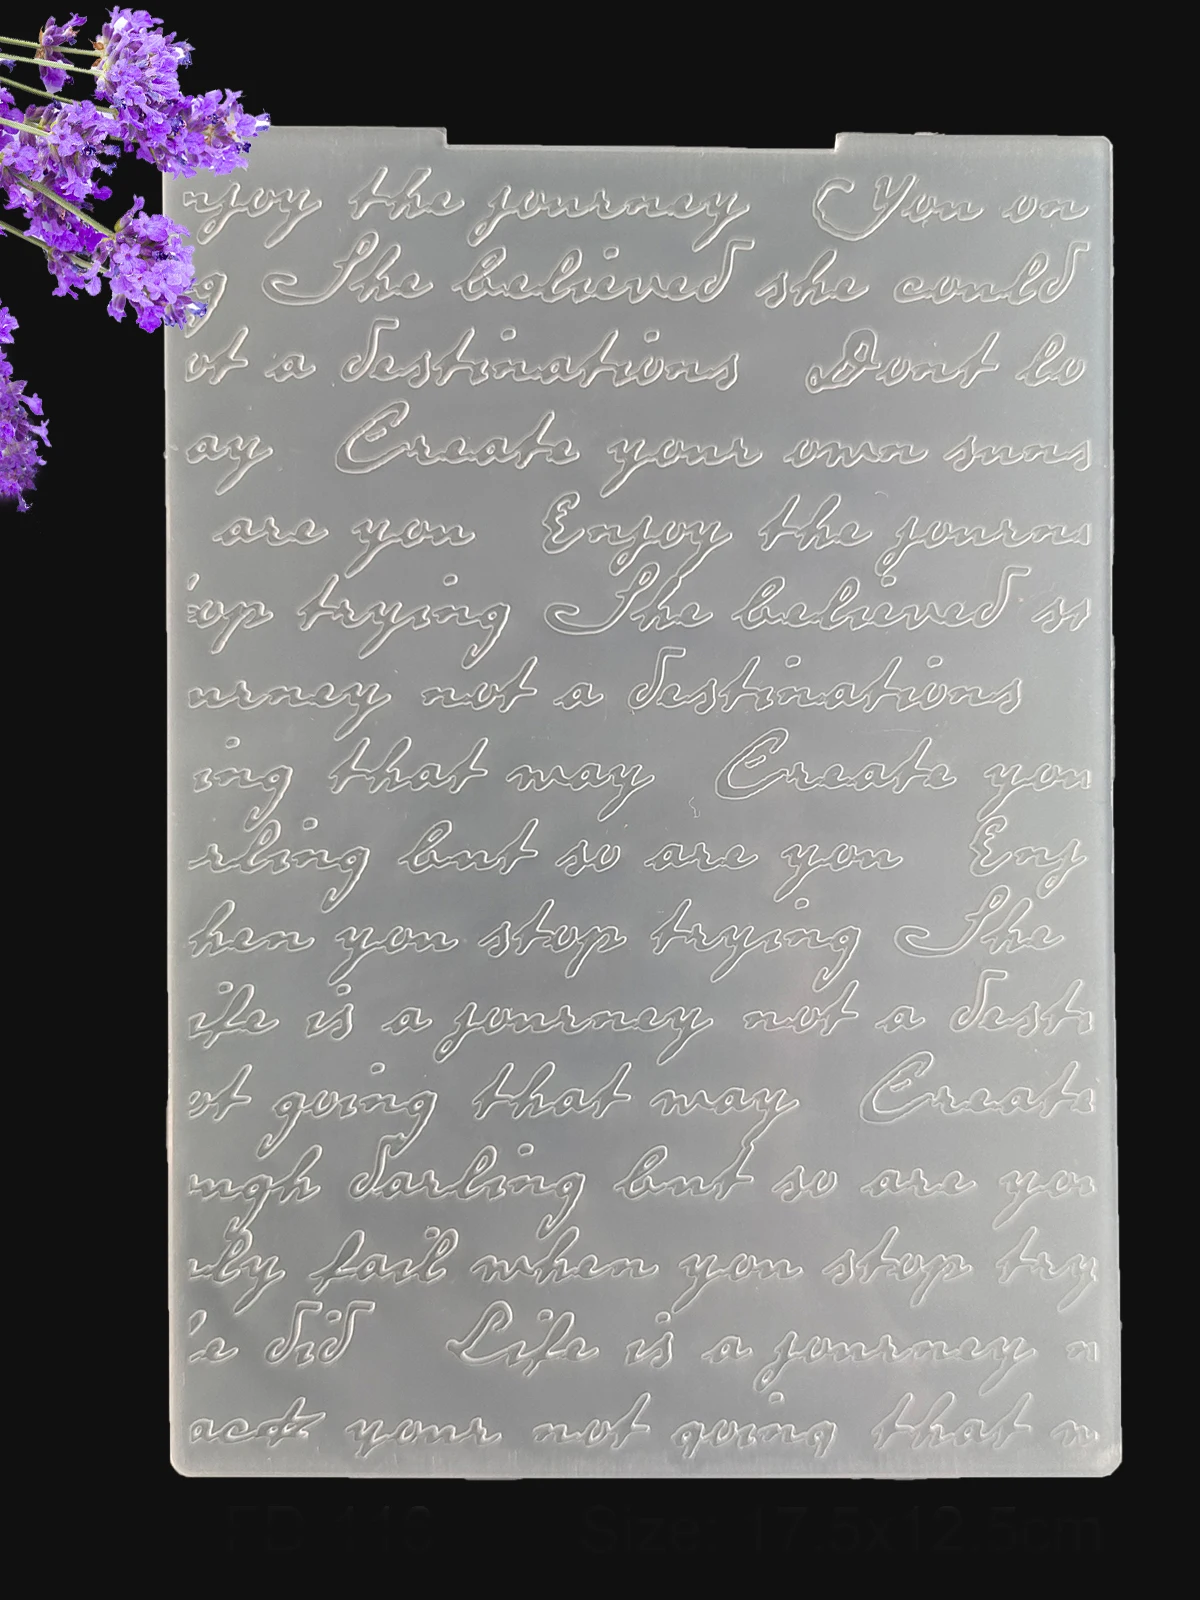 njoy the journey You on
g She believed she could
ot a destinations Dont lo
ay Create your own suns
are you Enjoy the journe
op trying She believed sh
urney not a destinations
ing that may Create you
rling but so are you Enj
hen you stop trying She
ife is a journey not a desti
ot going that may Create
ugh darling but so are you
nly fail when you stop try
e did Life is a journey n
back your not going that m
Size: 17.5x12.5cm